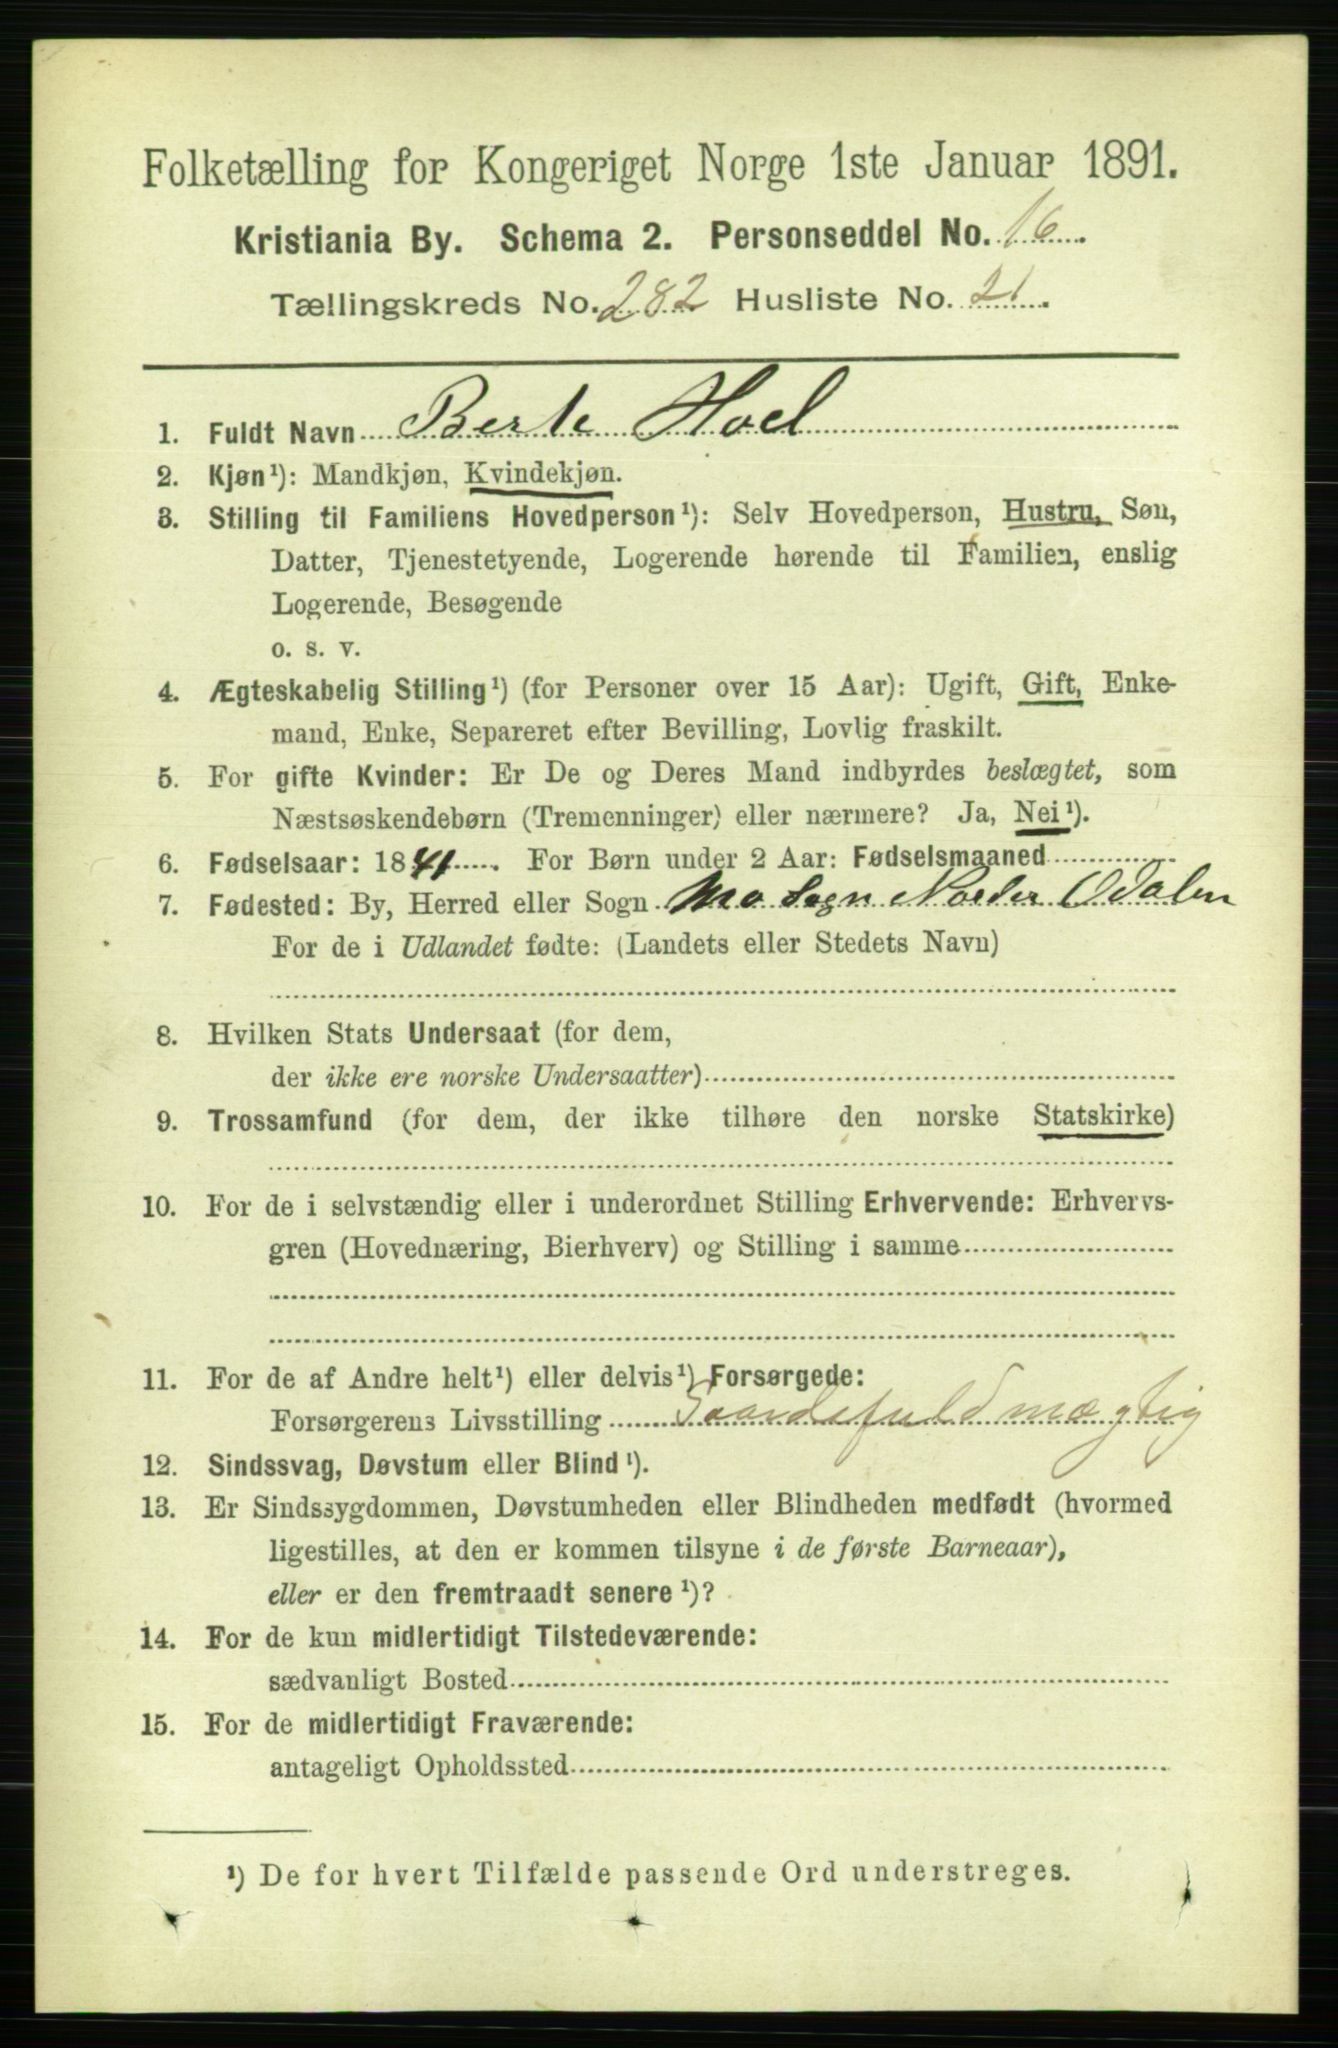 Folketælling for Kongeriget Norge 1ste Januar 1891.
Kristiania By. Schema 2. Personseddel No. 16.
Tællingskreds No. 282 Husliste No. 21.
1. Fuldt Navn Berte Hoel
2. Kjøn¹): Mandkjøn, Kvindekjøn.
3. Stilling til Familiens Hovedperson¹): Selv Hovedperson, Hustru, Søn,
Datter, Tjenestetyende, Logerende hørende til Familien, enslig
Logerende, Besøgende
o. s. v.
4. Ægteskabelig Stilling¹) (for Personer over 15 Aar): Ugift, Gift, Enke-
mand, Enke, Separeret efter Bevilling, Lovlig fraskilt.
5. For gifte Kvinder: Er De og Deres Mand indbyrdes beslægtet, som
Næstsøskendebørn (Tremenninger) eller nærmere? Ja, Nei¹).
6. Fødselsaar: 1841. For Børn under 2 Aar: Fødselsmaaned
7. Fødested: By, Herred eller Sogn Mo Sogn Norder Odalen
For de i Udlandet fødte: (Landets eller Stedets Navn)
8. Hvilken Stats Undersaat (for dem,
der ikke ere norske Undersaatter)
9. Trossamfund (for dem, der ikke tilhøre den norske Statskirke)
10. For de i selvstændig eller i underordnet Stilling Erhvervende: Erhvervs-
gren (Hovednæring, Bierhverv) og Stilling i samme
11. For de af Andre helt¹) eller delvis¹) Forsørgede:
Forsørgerens Livsstilling Gaardsfuldmægtig
12. Sindssvag, Døvstum eller Blind¹).
13. Er Sindssygdommen, Døvstumheden eller Blindheden medfødt (hvormed
ligestilles, at den er kommen tilsyne i de første Barneaar),
eller er den fremtraadt senere¹)?
14. For de kun midlertidigt Tilstedeværende:
sædvanligt Bosted
15. For de midlertidigt Fraværende:
antageligt Opholdssted
¹) De for hvert Tilfælde passende Ord understreges.